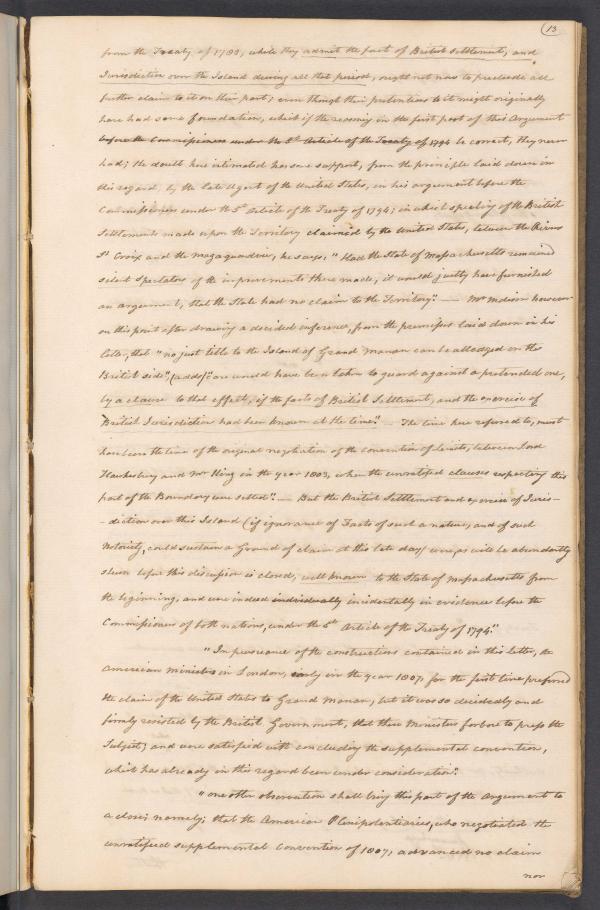 13
from the Treaty of 1783, while they admit the fact of British settlement, and
Jurisdiction over the Island during all that period, ought not now to preclude all
further claim to it on their part; even though their pretentions to it might originally
have had some foundation, which if the reasoning in the first part of this Argument
before the Commissioners under the 5th Article of the Treaty of 1794 be correct, they never
had; the doubt here intimated has some support, from the principle laid down in
this regard, by the late Agent of the United States, in his argument before the
Commissioners under the 5th Article of the Treaty of 1794; in which speaking of the British
Settlements made upon the Territory claimed by the United States, between the Rivers
St Croix and the Magaguadavic, he says: "Had the State of Massachusetts remained
silent spectators of the improvements there made, it would justly have furnished
an argument, that the State had no claim to the Territory." — Mr Madison however
on this point after drawing a decided inference, from the premises laid down in his
letter, that "no just title to the Island of Grand Manan can be alledged on the
British side", (adds) "care would have been taken to guard against a pretended one,
by a clause to that effect, if the facts of British Settlement, and the exercise of
British Jurisdiction had been known at the time". — The time here refered to, must
have been the time of the original negotiation of the convention of limits, between Lord
Hawkesbury and Mr King in the year 1803, when the unratified clauses respecting this
part of the Boundary were settled". — But the British Settlement and exercise of Juris-
-diction over this Island (if ignorance of Facts of such a nature, and of such
Notoriety, could sustain a Ground of claim at this late day) were, as will be abundantly
shewn before this discussion is closed, well known to the State of Massachusetts from
the beginning, and were indeed individually incidentally in evidence before the
Commissioners of both nations, under the 5th Article of the Treaty of 1794."
"In pursuance of the constructions contained in this letter, the
American ministers in London, early in the year 1807, for the first time preferred
the claim of the United States to Grand Manan, but it was so decidedly and
firmly resisted by the British Government, that these Ministers forbore to press the
Subject; and were satisfied with concluding the supplemental convention,
which has already in this regard been under consideration".
"One other observation shall bring this part of the Argument to
a close; namely; that the American Plenipotentiaries, who negotiated the
unratified supplemental Convention of 1807, advanced no claim
nor